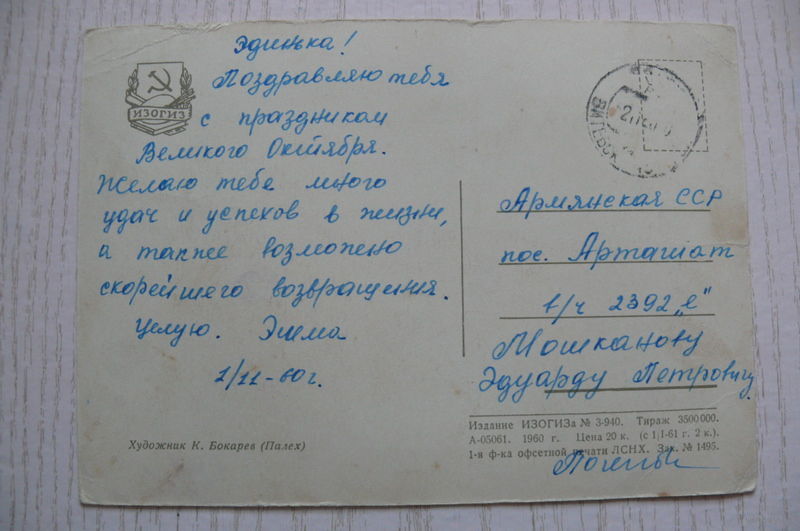 Эдинька!
Поздравляю тебя
с праздником
Великого Октября.
Желаю тебе много
удач и успехов в жизни,
а также возможно
скорейшего возвращения.
Целую. Эмма
1/11-60г.
Художник К. Бокарев (Палех)
ИЗОГИЗ
ВИТЕБСК
Армянская ССР
пос. Арташат
в/ч 2392 „е"
Мошканову
Эдуарду Петровичу
Издание ИЗОГИЗа № 3-940. Тираж 3500000.
А-05061. 1960 г. Цена 20 к. (с 1,1-61 г. 2 к.).
1-я ф-ка офсетной печати ЛСНХ. Зак. № 1495.